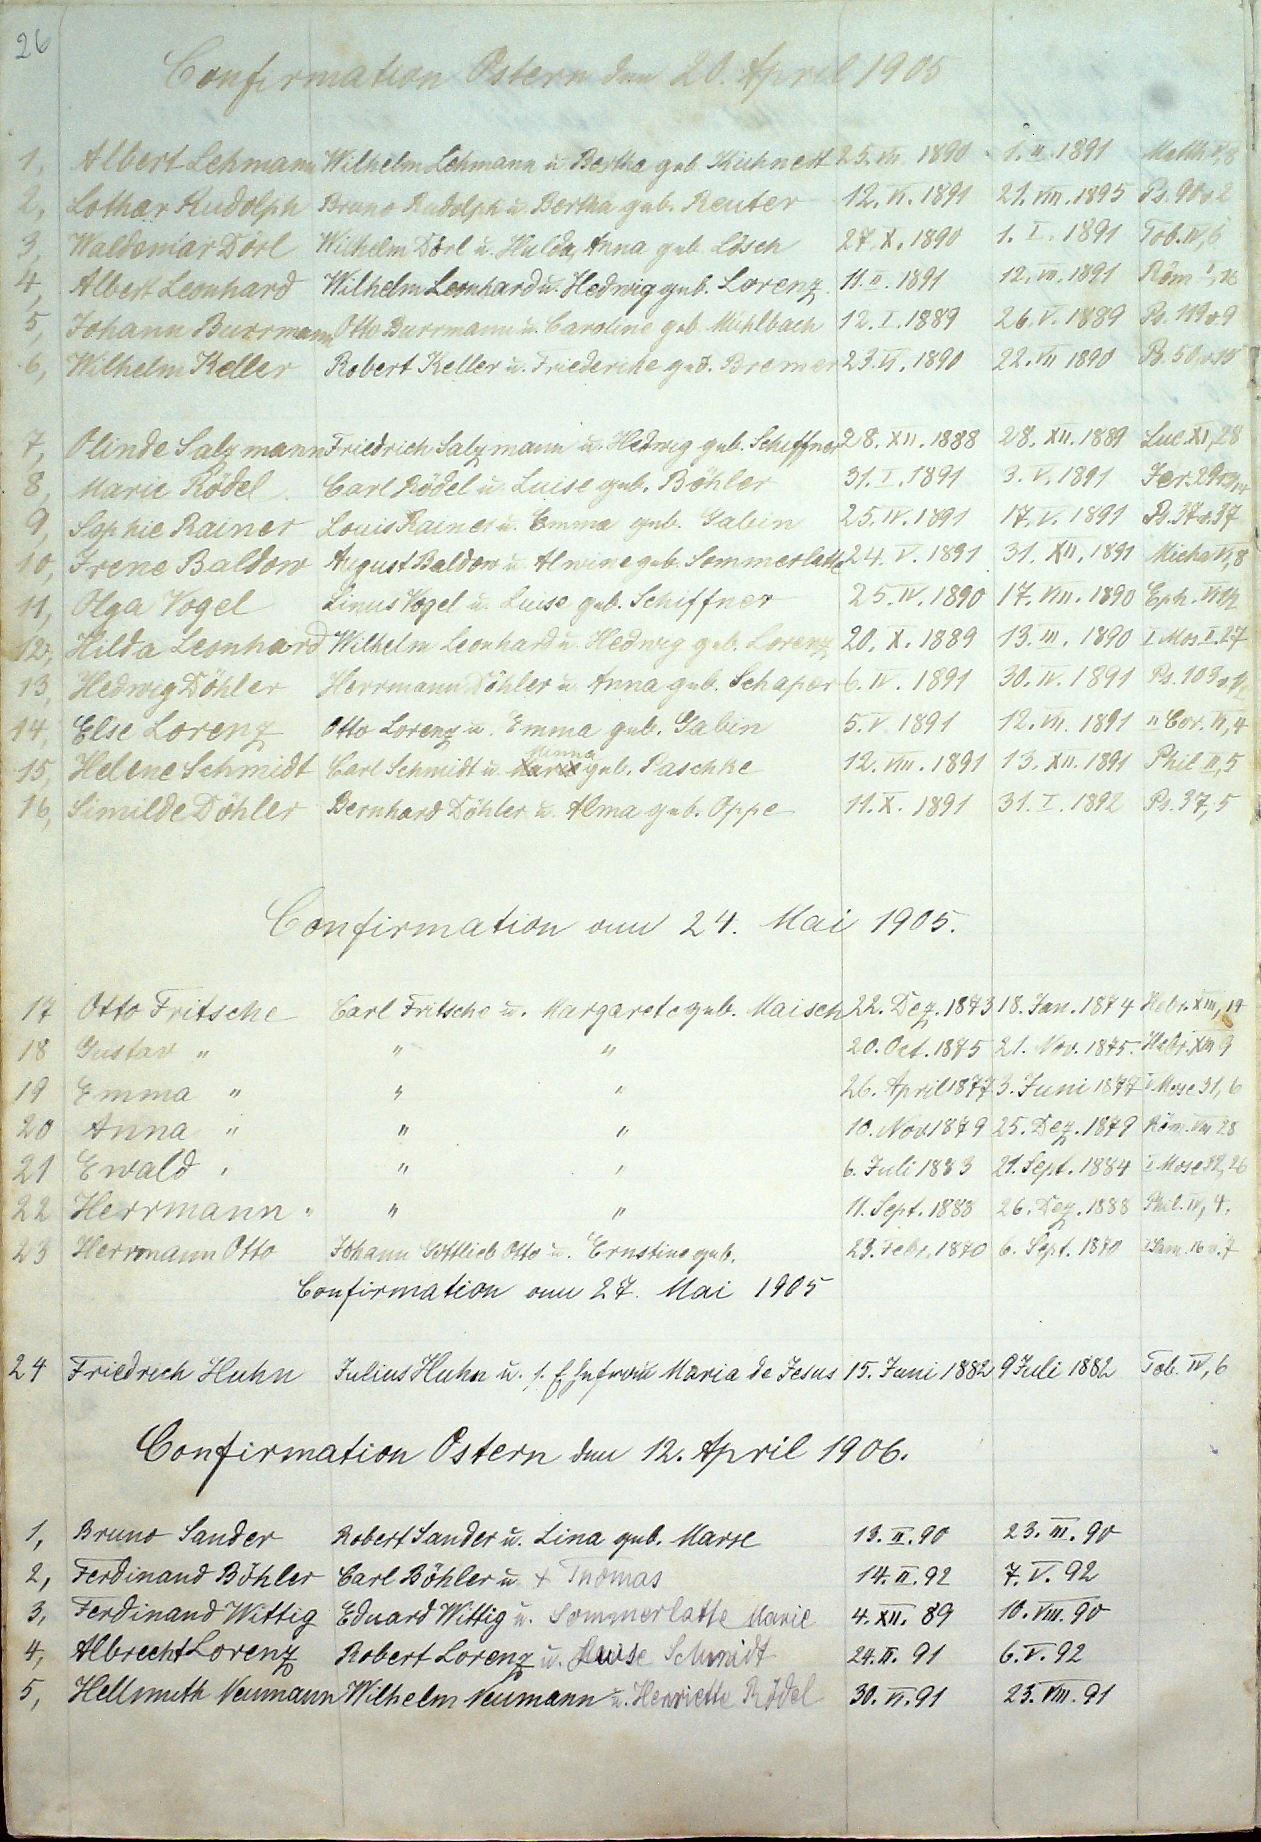 26
Confirmation Ostern den 20. April 1905
1, Albert Lehmann Wilhelm Lehmann u. Bertha geb. Kühnert 25. VII. 1890 1. II. 1891 Matth. V, 8
2, Lothar Rudolph Bruno Rudolph u. Bertha geb. Reuter 12. VI. 1891 21. VIII. 1895 Ps. 90 v 2
3, Waldemar Dörl Wilhelm Dörl u. Hulda, Anna geb. Lösch 27. X. 1890 1. I. 1891 Tob. IV, 6
4, Albert Leonhard Wilhelm Leonhard u. Hedwig geb. Lorenz 11. II. 1891 12. VII. 1891 Röm I, 16
5, Johann Burrmann Otto Burrmann u. Caroline geb. Mühlbach 12. I. 1889 26. V. 1889 Ps. 119 v 9
6, Wilhelm Keller Robert Keller u. Friederike geb. Bremer 23. VI. 1890 22. VII 1890 Ps. 50 v 15
7, Olinde Salzmann Friedrich Salzmann u. Hedwig geb. Schiffner 28. XII. 1888 28. XII. 1889 Luc. XI, 28
8, Marie Rödel Carl Rödel u. Luise geb. Böhler 31. I. 1891 3. V. 1891 Jer. 29 v
9, Sophie Rainer Louis Rainer u. Emma geb. Gabin 25. IV. 1891 17. V. 1891 Ps. 37 v. 37
10, Irene Baldow August Baldow u. Alwine geb. Sommerlatte 24. V. 1891 31. XII. 1891 Micha VI, 8
11, Olga Vogel Linus Vogel u. Luise geb. Schiffner 25. IV. 1890 17. VIII. 1890 Eph. VI
12, Hilda Leonhard Wilhelm Leonhard u. Hedwig geb. Lorenz 20. X. 1889 13. III. 1890 I Mos. I. 27
13, Hedwig Döhler Herrmann Döhler u. Anna geb. Schaper 6. IV. 1891 30. IV. 1891 Ps. 103 v 1
14, Else Lorenz Otto Lorenz u. Emma geb. Gabin 5. V. 1891 12. VII. 1891 II Cor. VI, 4
15, Helene Schmidt Carl Schmidt u. Marie Minna geb. Paschke 12. VIII. 1891 13. XII. 1891 Phil II, 5
16, Similde Döhler Bernhard Döhler u. Alma geb. Oppe 11. X. 1891 31. I. 1892 Ps. 37, 5
Confirmation am 24. Mai 1905.
17 Otto Fritsche Carl Fritsche u. Margarete geb. Maisch 22. Dez. 1873 18. Jan. 1874 Hebr. XIII, 14
18 Gustav " " " 20. Oct. 1875 21. Nov. 1875. Hebr. XIII 9
19 Emma " " " 26. April 1877 3. Juni 1877 V Mose 31, 6
20 Anna " " " 10. Nov 1879 25. Dez. 1879 Röm. VIII 28
21 Ewald " " " 6. Juli 1883 21. Sept. 1884 I Mose 32, 26
22 Herrmann " " " 11. Sept. 1888 26. Dez. 1888 Phil. IV, 4.
23 Herrmann Otto Johann Gottlieb Otto u. Ernstine geb. 23. Febr. 1870 6. Sept. 1870 I Sam. 16 v. 7
Confirmation am 27. Mai 1905
24 Friedrich Huhn Julius Huhn u. s. Ehefrau Maria de Jesus 15. Juni 1882 9 Juli 1882 Tob. IV, 6
Confirmation Ostern den 12. April 1906.
1, Bruno Sander Robert Sander u. Lina geb. Marse 13. II. 90 23. III. 90
2, Ferdinand Böhler Carl Böhler u. + Thomas 14. II. 92 7. V. 92
3, Ferdinand Wittig Eduard Wittig u. Sommerlatte Marie 4. XII. 89 10. VIII. 90
4, Albrecht Lorenz Robert Lorenz u. Luise Schmidt 24. II. 91 6. V. 92
5, Hellmuth Neumann Wilhelm Neumann u. Henriette Rödel 30. VI. 91 23. VIII. 91